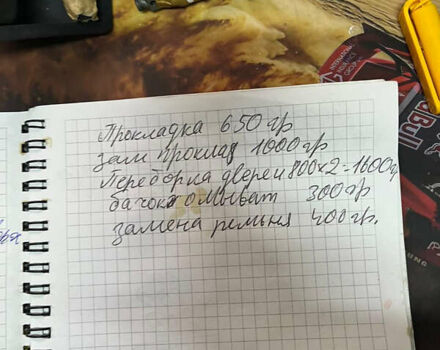 Прокладка 650 гр
зам проклад 1000 гр
Переборка дверей 800х2-1600 гр
бачок омыват 300 гр
замена ремня 400 гр.
RedBull
SUNG